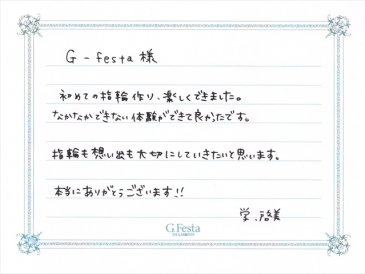 G-festa 様
初めての指輪作り、楽しくできました。
なかなかできない体験ができて良かったです。
指輪も想い出も大切にしていきたいと思います。
本当にありがとうございます!!
G.Festa